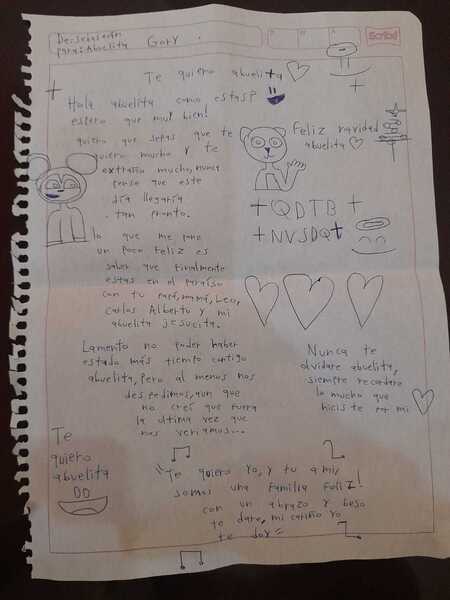 De: Sebastián
para: Abuelita Gory.
Scribe
Te quiero abuelita
Hola abuelita como estas?
espero que muy bien!
quiero que sepas que te
quiero mucho y te
extraño mucho, nunca
pense que este
día llegaría
tan pronto.
lo que me pone
un poco feliz es
saber que finalmente
estas en el paraíso
con tu papá, mamá, Leo,
Carlos Alberto y mi
abuelita jesucita.
Lamento no poder haber
estado más tiempo contigo
abuelita, pero al menos nos
despedimos, aun que
no creí que fuera
la última vez que
nos veríamos...
Te
quiero
abuelita
Feliz navidad
abuelita
QDTB
NVSDQ
Nunca te
olvidare abuelita,
siempre recadare
lo mucho que
hiciste por mi
"Te quiero yo, y tu a mi,
somos una familia feliz!
con un abrazo y beso
te dare, mi cariño yo
te doy"